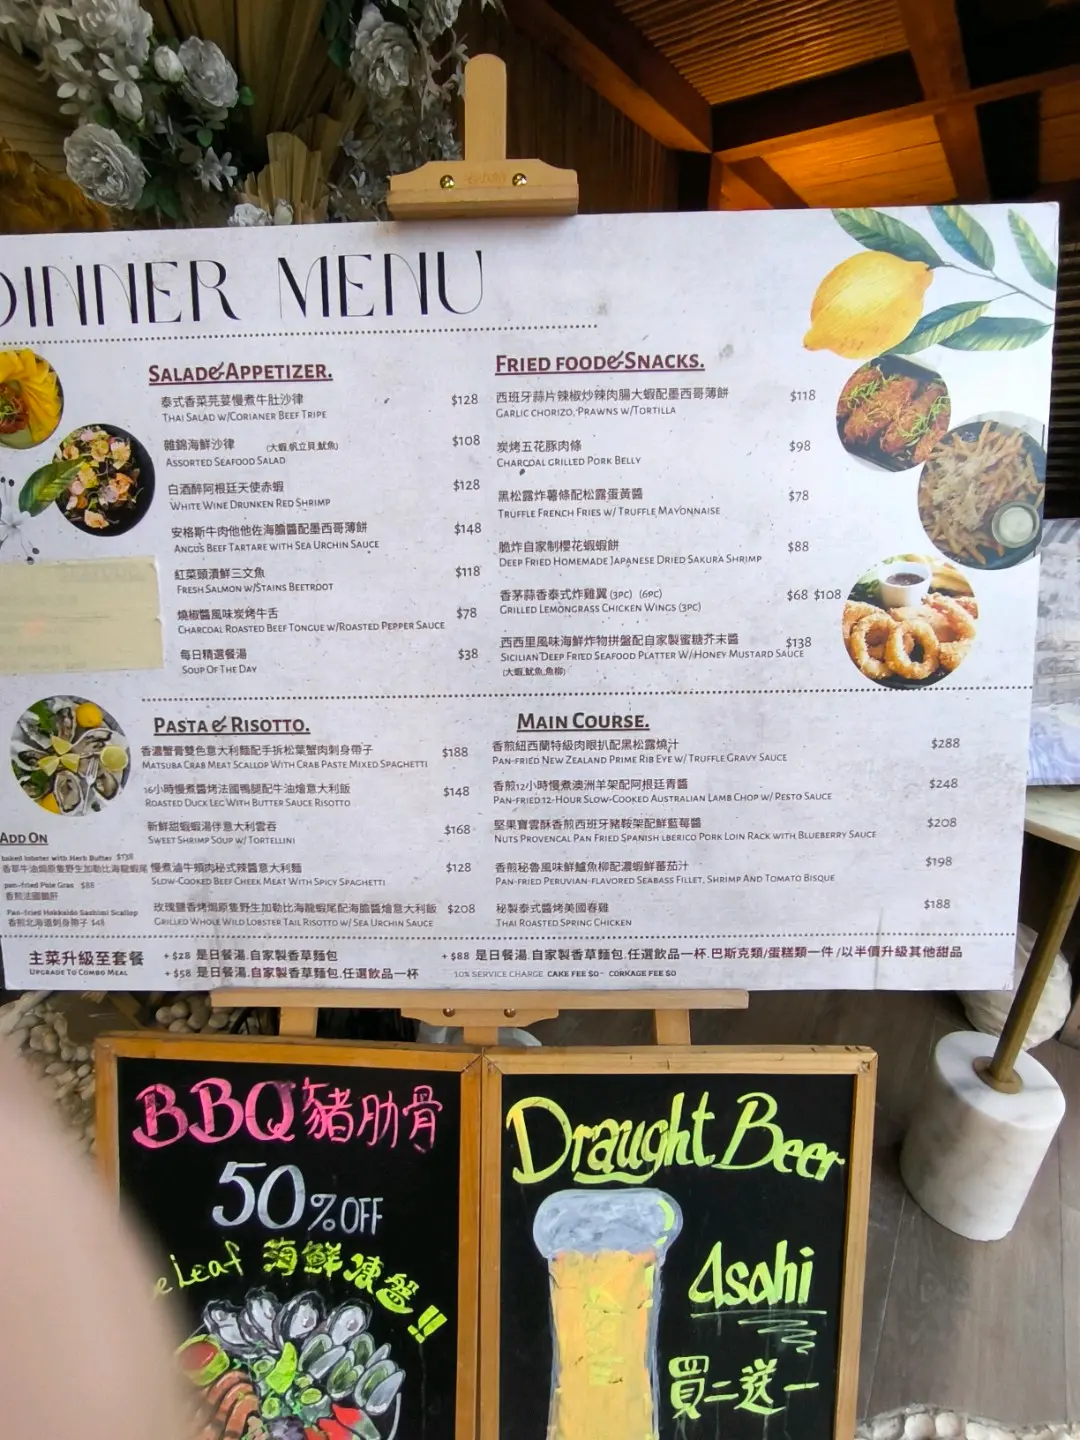 DINNER MENU
SALAD&APPETIZER.
泰式香菜芫荽慢煮牛肚沙律 $128
THAI SALAD W/CORIANER BEEF TRIPE
雜錦海鮮沙律 (大蝦,帆立貝,魷魚) $108
ASSORTED SEAFOOD SALAD
白酒醉阿根廷天使赤蝦 $128
WHITE WINE DRUNKEN RED SHRIMP
安格斯牛肉他他佐海膽醬配墨西哥薄餅 $148
ANGUS BEEF TARTARE WITH SEA URCHIN SAUCE
紅菜頭漬鮮三文魚 $118
FRESH SALMON W/STAINS BEETROOT
燒椒醬風味炭烤牛舌 $78
CHARCOAL ROASTED BEEF TONGUE W/ROASTED PEPPER SAUCE
每日精選餐湯 $38
SOUP OF THE DAY
FRIED FOOD&SNACKS.
西班牙蒜片辣椒炒辣肉腸大蝦配墨西哥薄餅 $118
GARLIC CHORIZO, PRAWNS W/TORTILLA
炭烤五花豚肉條 $98
CHARCOAL GRILLED PORK BELLY
黑松露炸薯條配松露蛋黃醬 $78
TRUFFLE FRENCH FRIES W/ TRUFFLE MAYONNAISE
脆炸自家制櫻花蝦蝦餅 $88
DEEP FRIED HOMEMADE JAPANESE DRIED SAKURA SHRIMP
香茅蒜香泰式炸雞翼 (3PC) (6PC) $68 $108
GRILLED LEMONGRASS CHICKEN WINGS (3PC)
西西里風味海鮮炸物拼盤配自家製蜜糖芥末醬 $138
SICILIAN DEEP FRIED SEAFOOD PLATTER W/ HONEY MUSTARD SAUCE
(大蝦,魷魚,魚柳)
PASTA & RISOTTO.
香濃蟹膏雙色意大利麵配手拆松葉蟹肉刺身帶子 $188
MATSUBA CRAB MEAT SCALLOP WITH CRAB PASTE MIXED SPAGHETTI
16小時慢煮醬烤法國鴨腿配牛油燴意大利飯 $148
ROASTED DUCK LEG WITH BUTTER SAUCE RISOTTO
新鮮甜蝦蝦湯伴意大利雲吞 $168
SWEET SHRIMP SOUP W/ TORTELLINI
慢煮滷牛頰肉秘式辣醬意大利麵 $128
SLOW-COOKED BEEF CHEEK MEAT WITH SPICY SPAGHETTI
玫瑰鹽香烤焗原隻野生加勒比海龍蝦尾配海膽醬燴意大利飯 $208
GRILLED WHOLE WILD LOBSTER TAIL RISOTTO W/ SEA URCHIN SAUCE
MAIN COURSE.
香煎紐西蘭特級肉眼扒配黑松露燒汁 $288
PAN-FRIED NEW ZEALAND PRIME RIB EYE W/ TRUFFLE GRAVY SAUCE
香煎12小時慢煮澳洲羊架配阿根廷青醬 $248
PAN-FRIED 12-HOUR SLOW-COOKED AUSTRALIAN LAMB CHOP W/ RESTO SAUCE
堅果寶雲酥香煎西班牙豬鞍架配鮮藍莓醬 $208
NUTS PROVENCAL PAN FRIED SPANISH LBERICO PORK LOIN RACK WITH BLUEBERRY SAUCE
香煎秘魯風味鮮鱸魚柳配濃蝦鮮蕃茄汁 $198
PAN-FRIED PERUVIAN-FLAVORED SEABASS FILLET, SHRIMP AND TOMATO BISQUE
秘製泰式醬烤美國春雞 $188
THAI ROASTED SPRING CHICKEN
ADD ON
baked lobster with Herb Butter $138
香草牛油焗原隻野生加勒比海龍蝦尾
pan-fried Foie Gras $88
香煎法國鵝肝
Pan-fried Hokkaido Sashimi Scallop
香煎北海道刺身帶子 $48
主菜升級至套餐
UPGRADE TO COMBO MEAL
+ $28 是日餐湯.自家製香草麵包
+ $58 是日餐湯.自家製香草麵包.任選飲品一杯
+ $88 是日餐湯.自家製香草麵包.任選飲品一杯.巴斯克類/蛋糕類一件 /以半價升級其他甜品
10% SERVICE CHARGE CAKE FEE $0 - CORKAGE FEE $0
BBQ豬肋骨
50% OFF
Leaf 海鮮凍盤!!
Draught Beer
Asahi
買二送一